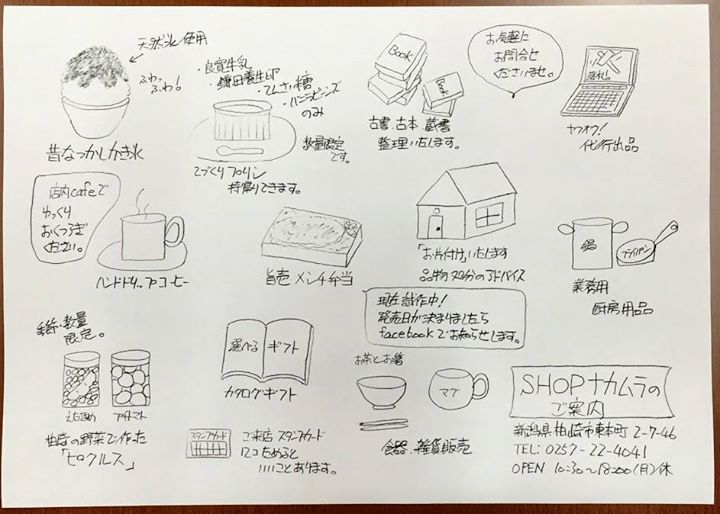 天然氷使用
ふわっ
ふわ!
昔なつかしかき氷
・良寛牛乳
・鎌田養生卵
・てんさい糖
・バニラビーンズ
のみ
数量限定
です。
てづくりプリン
持帰りできます。
Book
Book
古書・古本 蔵書
整理いたします。
お気軽に
お問合せ
くださいませ。
ヤフオク!
代行出品
店内cafeで
ゆっくり
おくつろぎ
ください。
ハンドドリップコーヒー
メンチ弁当
「お片付け」いたします
品物処分のアドバイス
鍋
フライパン
業務用
厨房用品
現在試作中!
発売日が決まりましたら
facebookでお知らせします。
季節・数量
限定。
えだまめ
プチトマト
の野菜で作った
「ピクルス」
選べる
ギフト
カタログギフト
スタンプカード
ご来店スタンプカード
12コためると
いいことあります。
お茶とお箸
マグ
食器・雑貨販売
SHOPナカムラの
ご案内
新潟県柏崎市東本町2-7-46
TEL: 0257-22-4041
OPEN 10:30~18:00(月)休